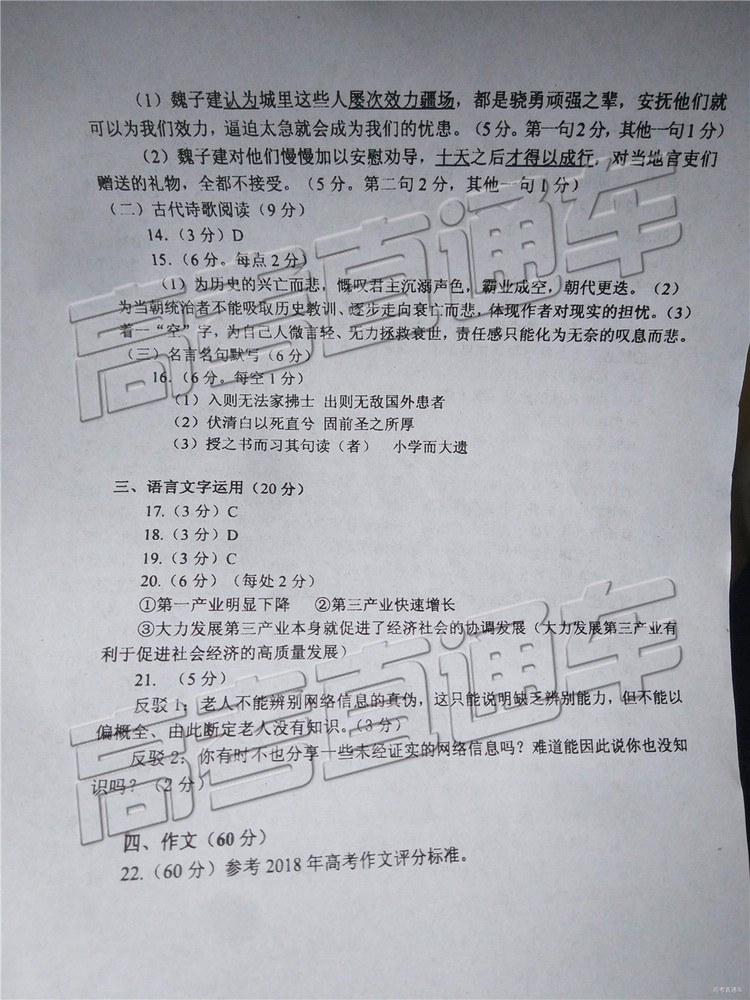 （1）魏子建认为城里这些人屡次效力疆场，都是骁勇顽强之辈，安抚他们就
可以为我们效力，逼迫太急就会成为我们的忧患。（5分。第一句2分，其他一句1分）
（2）魏子建对他们慢慢加以安慰劝导，十天之后才得以成行，对当地官吏们
赠送的礼物，全都不接受。（5分。第二句2分，其他一句1分）
（二）古代诗歌阅读（9分）
14.（3分）D
15.（6分。每点2分）
（1）为历史的兴亡而悲，慨叹君主沉溺声色，霸业成空，朝代更迭。（2）
为当朝统治者不能吸取历史教训、逐步走向衰亡而悲，体现作者对现实的担忧。（3）
着一“空”字，为自己人微言轻、无力拯救衰世，责任感只能化为无奈的叹息而悲。
（三）名言名句默写（6分）
16.（6分。每空1分）
（1）入则无法家拂士 出则无敌国外患者
（2）伏清白以死直兮 固前圣之所厚
（3）授之书而习其句读（者） 小学而大遗
三、语言文字运用（20分）
17.（3分）C
18.（3分）D
19.（3分）C
20.（6分）（每处2分）
①第一产业明显下降 ②第三产业快速增长
③大力发展第三产业本身就促进了经济社会的协调发展（大力发展第三产业有
利于促进社会经济的高质量发展）
21.（5分）
反驳1：老人不能辨别网络信息的真伪，这只能说明缺乏辨别能力，但不能以
偏概全、由此断定老人没有知识。（3分）
反驳2：你有时不也分享一些未经证实的网络信息吗？难道能因此说你也没知
识吗？（2分）
四、作文（60分）
22.（60分）参考2018年高考作文评分标准。
高考直通车
高考直通车
高考直通车